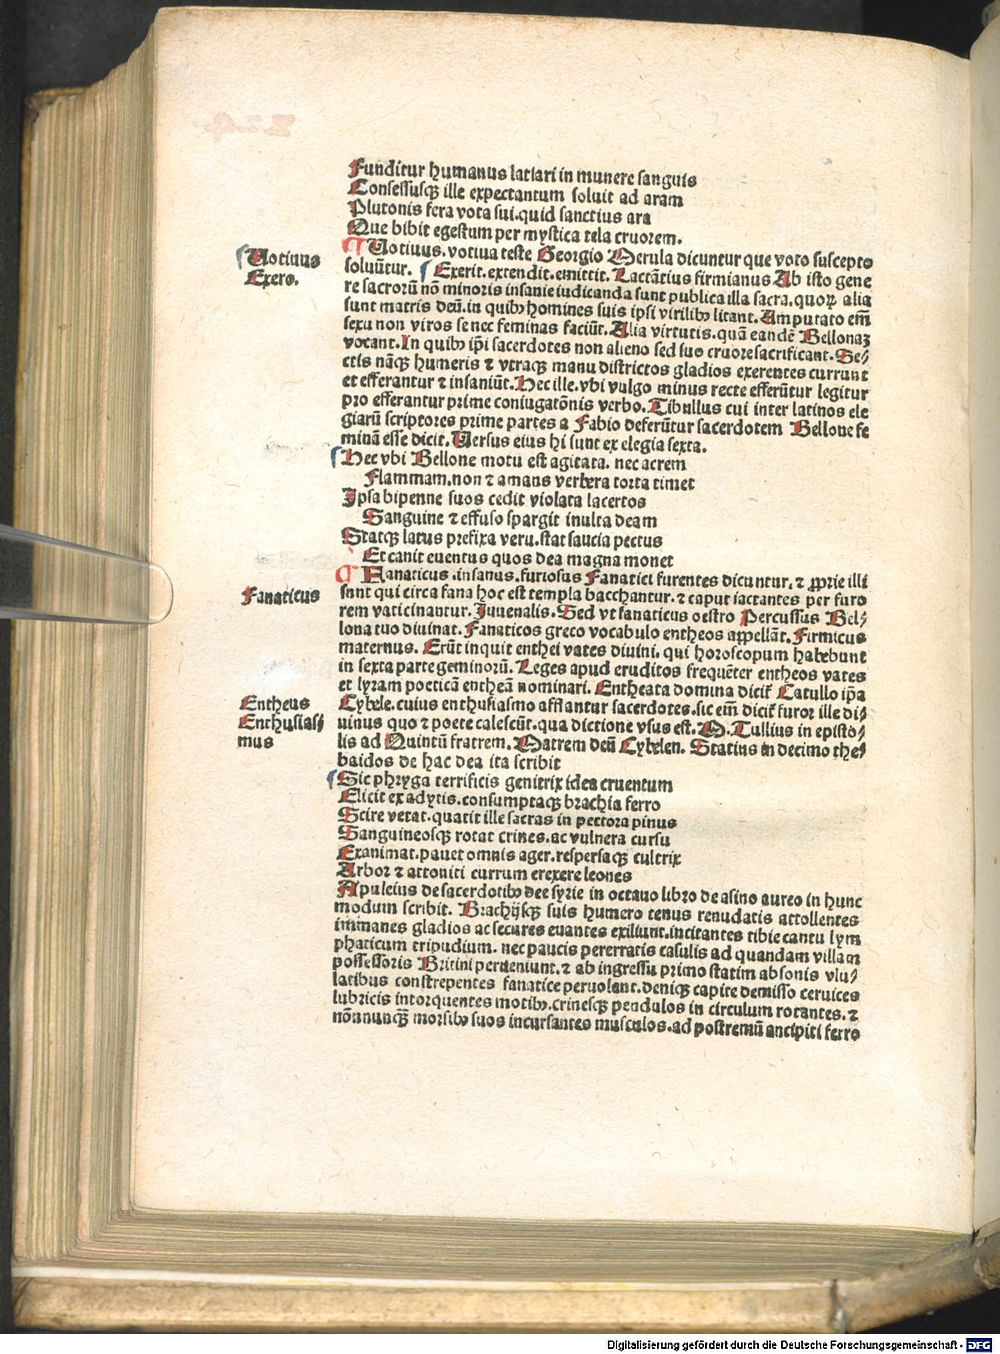 Funditur humanus latiari in munere sanguis
Consessusqꝫ ille expectantum soluit ad aram
Plutonis fera vota sui. quid sanctius ara
Que bibit egestum per mystica tela cruorem.
Uotiuus
Exero.
¶ Uotiuus. votiua teste Georgio Merula dicuntur que voto suscepto
soluūtur. Exerit. extendit. emittit. Lactātius firmianus Ab isto gene
re sacrorū nō minoris insanie iudicanda sunt publica illa sacra. quoꝝ alia
sunt matris deū. in quibꝰ homines suis ipsi virilibꝰ litant. Amputato em̄
sexu non viros se nec feminas faciūt. Alia virtutis. quā eandē Bellonaꝫ
vocant. In quibꝰ ip̄i sacerdotes non alieno sed suo cruore sacrificant. Se⸗
ctis nāqꝫ humeris ⁊ vtraqꝫ manu districtos gladios exerentes currunt
et efferantur ⁊ insaniūt. Hec ille. vbi vulgo minus recte efferūtur legitur
pro efferantur prime coniugatōnis verbo. Tibullus cui inter latinos ele
giarū scriptores prime partes a Fabio deferūtur sacerdotem Bellone fe
minā esse dicit. Uersus eius hi sunt ex elegia sexta.
Hec vbi Bellone motu est agitata. nec acrem
Flammam. non ⁊ amans verbera torta timet
Ipsa bipenne suos cedit violata lacertos
Sanguine ⁊ effuso spargit inulta deam
Statqꝫ latus prefixa veru. stat saucia pectus
Et canit euentus quos dea magna monet
Fanaticus
¶ Fanaticus. insanus. furiosus Fanatici furentes dicuntur. ⁊ ꝓprie illi
sunt qui circa fana hoc est templa bacchantur. ⁊ caput iactantes per furo
rem vaticinantur. Juuenalis. Sed vt fanaticus oestro Percussus Bel⸗
lona tuo diuinat. Fanaticos greco vocabulo entheos appellāt. Firmicus
maternus. Erūt inquit enthei vates diuini. qui horoscopum habebunt
in sexta parte geminorū. Leges apud eruditos frequēter entheos vates
et lyram poeticā entheā nominari. Entheata domina dicit̄ Catullo ip̄a
Entheus
Enthusias⸗
mus
Cybele. cuius enthusiasmo afflantur sacerdotes. sic em̄ dicit̄ furor ille di⸗
uinus quo ⁊ poete calescūt. qua dictione vsus est. M. Tullius in episto⸗
lis ad Quintū fratrem. Matrem deū Cybelen. Statius in decimo the⸗
baidos de hac dea ita scribit
Sic phryga terrificis genitrix idea cruentum
Elicit ex adytis. consumptaqꝫ brachia ferro
Scire vetat. quatit ille sacras in pectora pinus
Sanguineosqꝫ rotat crines. ac vulnera cursu
Exanimat. pauet omnis ager. respersaqꝫ cultrix
Arbor ⁊ attoniti currum erexere leones
Apuleius de sacerdotibꝰ dee syrie in octauo libro de asino aureo in hunc
modum scribit. Brachijsqꝫ suis humero tenus renudatis attollentes
immanes gladios ac secures euantes exiliunt. incitantes tibie cantu lym
phaticum tripudium. nec paucis pererratis casulis ad quandam villam
possessoris Britini perueniunt. ⁊ ab ingressu primo statim absonis vlu⸗
latibus constrepentes fanatice peruolant. deniqꝫ capite demisso ceruices
lubricis intorquentes motibꝰ. crinesqꝫ pendulos in circulum rotantes. ⁊
nōnnunqꝫ morsibꝰ suos incursantes musculos. ad postremū ancipiti ferro
Digitalisierung gefördert durch die Deutsche Forschungsgemeinschaft - DFG